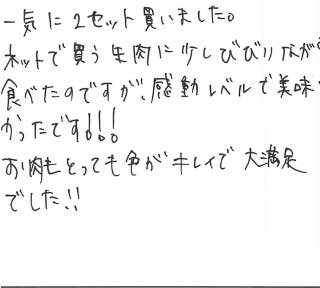 一気に2セット買いました。
ネットで買う生肉に少しびびりながら
食べたのですが、感動レベルで美味
かったです!!!
お肉もとっても色がキレイで大満足
でした!!